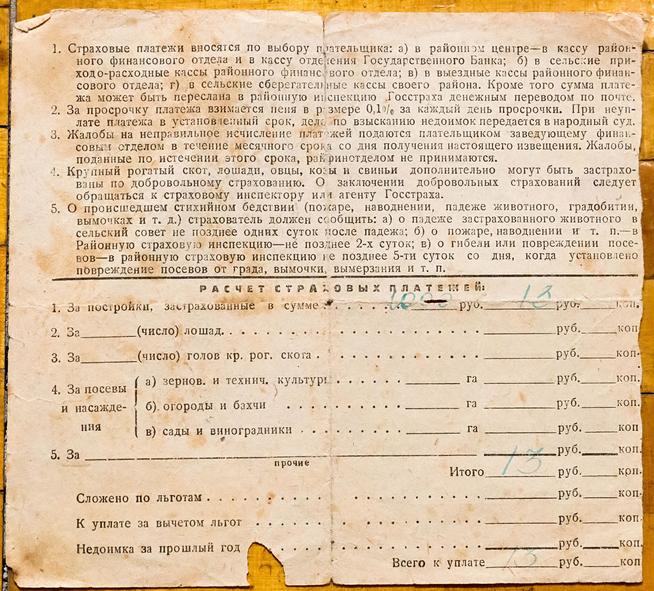 1. Страховые платежи вносятся по выбору плательщика: а) в районном центре—в кассу район-
ного финансового отдела и в кассу отделения Государственного Банка; б) в сельские при-
ходо-расходные кассы районного финансового отдела; в) в выездные кассы районного финан-
сового отдела; г) в сельские сберегательные кассы своего района. Кроме того сумма плате-
жа может быть переслана в районную инспекцию Госстраха денежным переводом по почте.
2. За просрочку платежа взимается пеня в размере 0,1% за каждый день просрочки. При неуп-
лате платежа в установленный срок, дело по взысканию недоимок передается в народный суд.
3. Жалобы на неправильное исчисление платежей подаются плательщиком заведующему финан-
совым отделом в течение месячного срока со дня получения настоящего извещения. Жалобы,
поданные по истечении этого срока, райфинотделом не принимаются.
4. Крупный рогатый скот, лошади, овцы, козы и свиньи дополнительно могут быть застрахо-
ваны по добровольному страхованию. О заключении добровольных страхований следует
обращаться к страховому инспектору или агенту Госстраха.
5. О происшедшем стихийном бедствии (пожаре, наводнении, падеже животного, градобитии,
вымочках и т. д.) страхователь должен сообщить: а) о падеже застрахованного животного в
сельский совет не позднее одних суток после падежа; б) о пожаре, наводнении и т. п.—в
Районную страховую инспекцию—не позднее 2-х суток; в) о гибели или повреждении посе-
вов—в районную страховую инспекцию не позднее 5-ти суток со дня, когда установлено
повреждение посевов от града, вымочки, вымерзания и т. п.
РАСЧЕТ СТРАХОВЫХ ПЛАТЕЖЕЙ:
1. За постройки, застрахованные в сумме . . . . . 1000 руб. 13 руб. коп.
2. За (число) лошад. . . . . . . руб. коп.
3. За (число) голов кр. рог. скота . . . . . . руб. коп.
4. За посевы и насажде-ния
а) зернов. и технич. культуры га руб. коп.
б) огороды и бахчи . . . . . . га руб. коп.
в) сады и виноградники . . . . . . га руб. коп
5. За руб. коп
прочие
Итого 13 руб. коп.
Сложено по льготам . . . . . . руб. коп.
К уплате за вычетом льгот . . . . . . руб. коп.
Недоимка за прошлый год . . . . . . руб. коп.
Всего к уплате 13 руб. коп